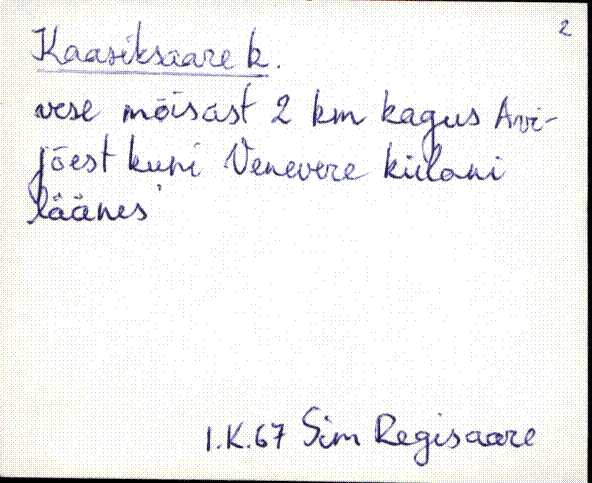 2
Kaasiksaare k.
vese mõisast 2 km kagus Avi-
jõest kuni Venevere külani
läänes
I.K.67 Sim Regisaare